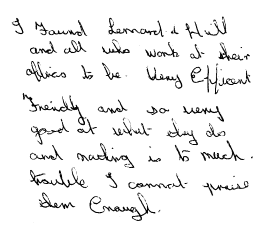 I Faund Lennard & Hill
and all who work at their
offices to be. Very Efficent
"Freindly and so very
good at what they do
and nothing is to much.
trouble I cannot praise
them Enough.